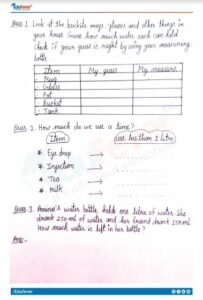 Edufever
Ques 1. Look at the buckets, mugs, glasses and other things in
your house. Guess how much water each can hold
Check if your guess is right by using your measuring
bottle.
Item My guess My measure
Mug
Glass
Pot
Bucket
Tank
Ques 2. How much do we use a time?
Item less than 1 litre
* Eye drop →
* Injection →
* Tea →
* Milk →
Ques 3. Amina's water bottle holds one litre of water. She
drank 250 ml of water and her friend drank 150 ml
How much water is left in her bottle?
Ans.
/Edufever